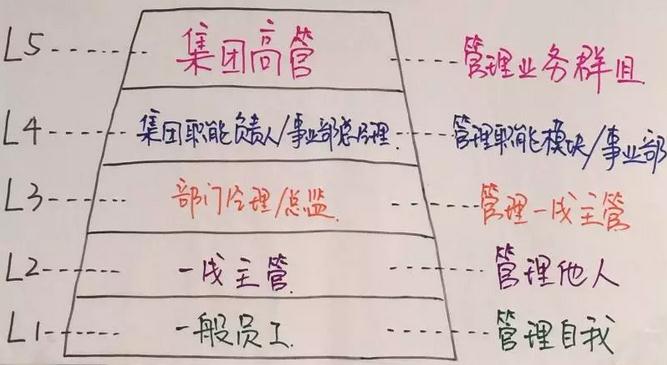 L5 集团高管 管理业务群组
L4 集团职能负责人/事业部总经理 管理职能模块/事业部
L3 部门经理/总监 管理一线主管
L2 一线主管 管理他人
L1 一般员工 管理自我